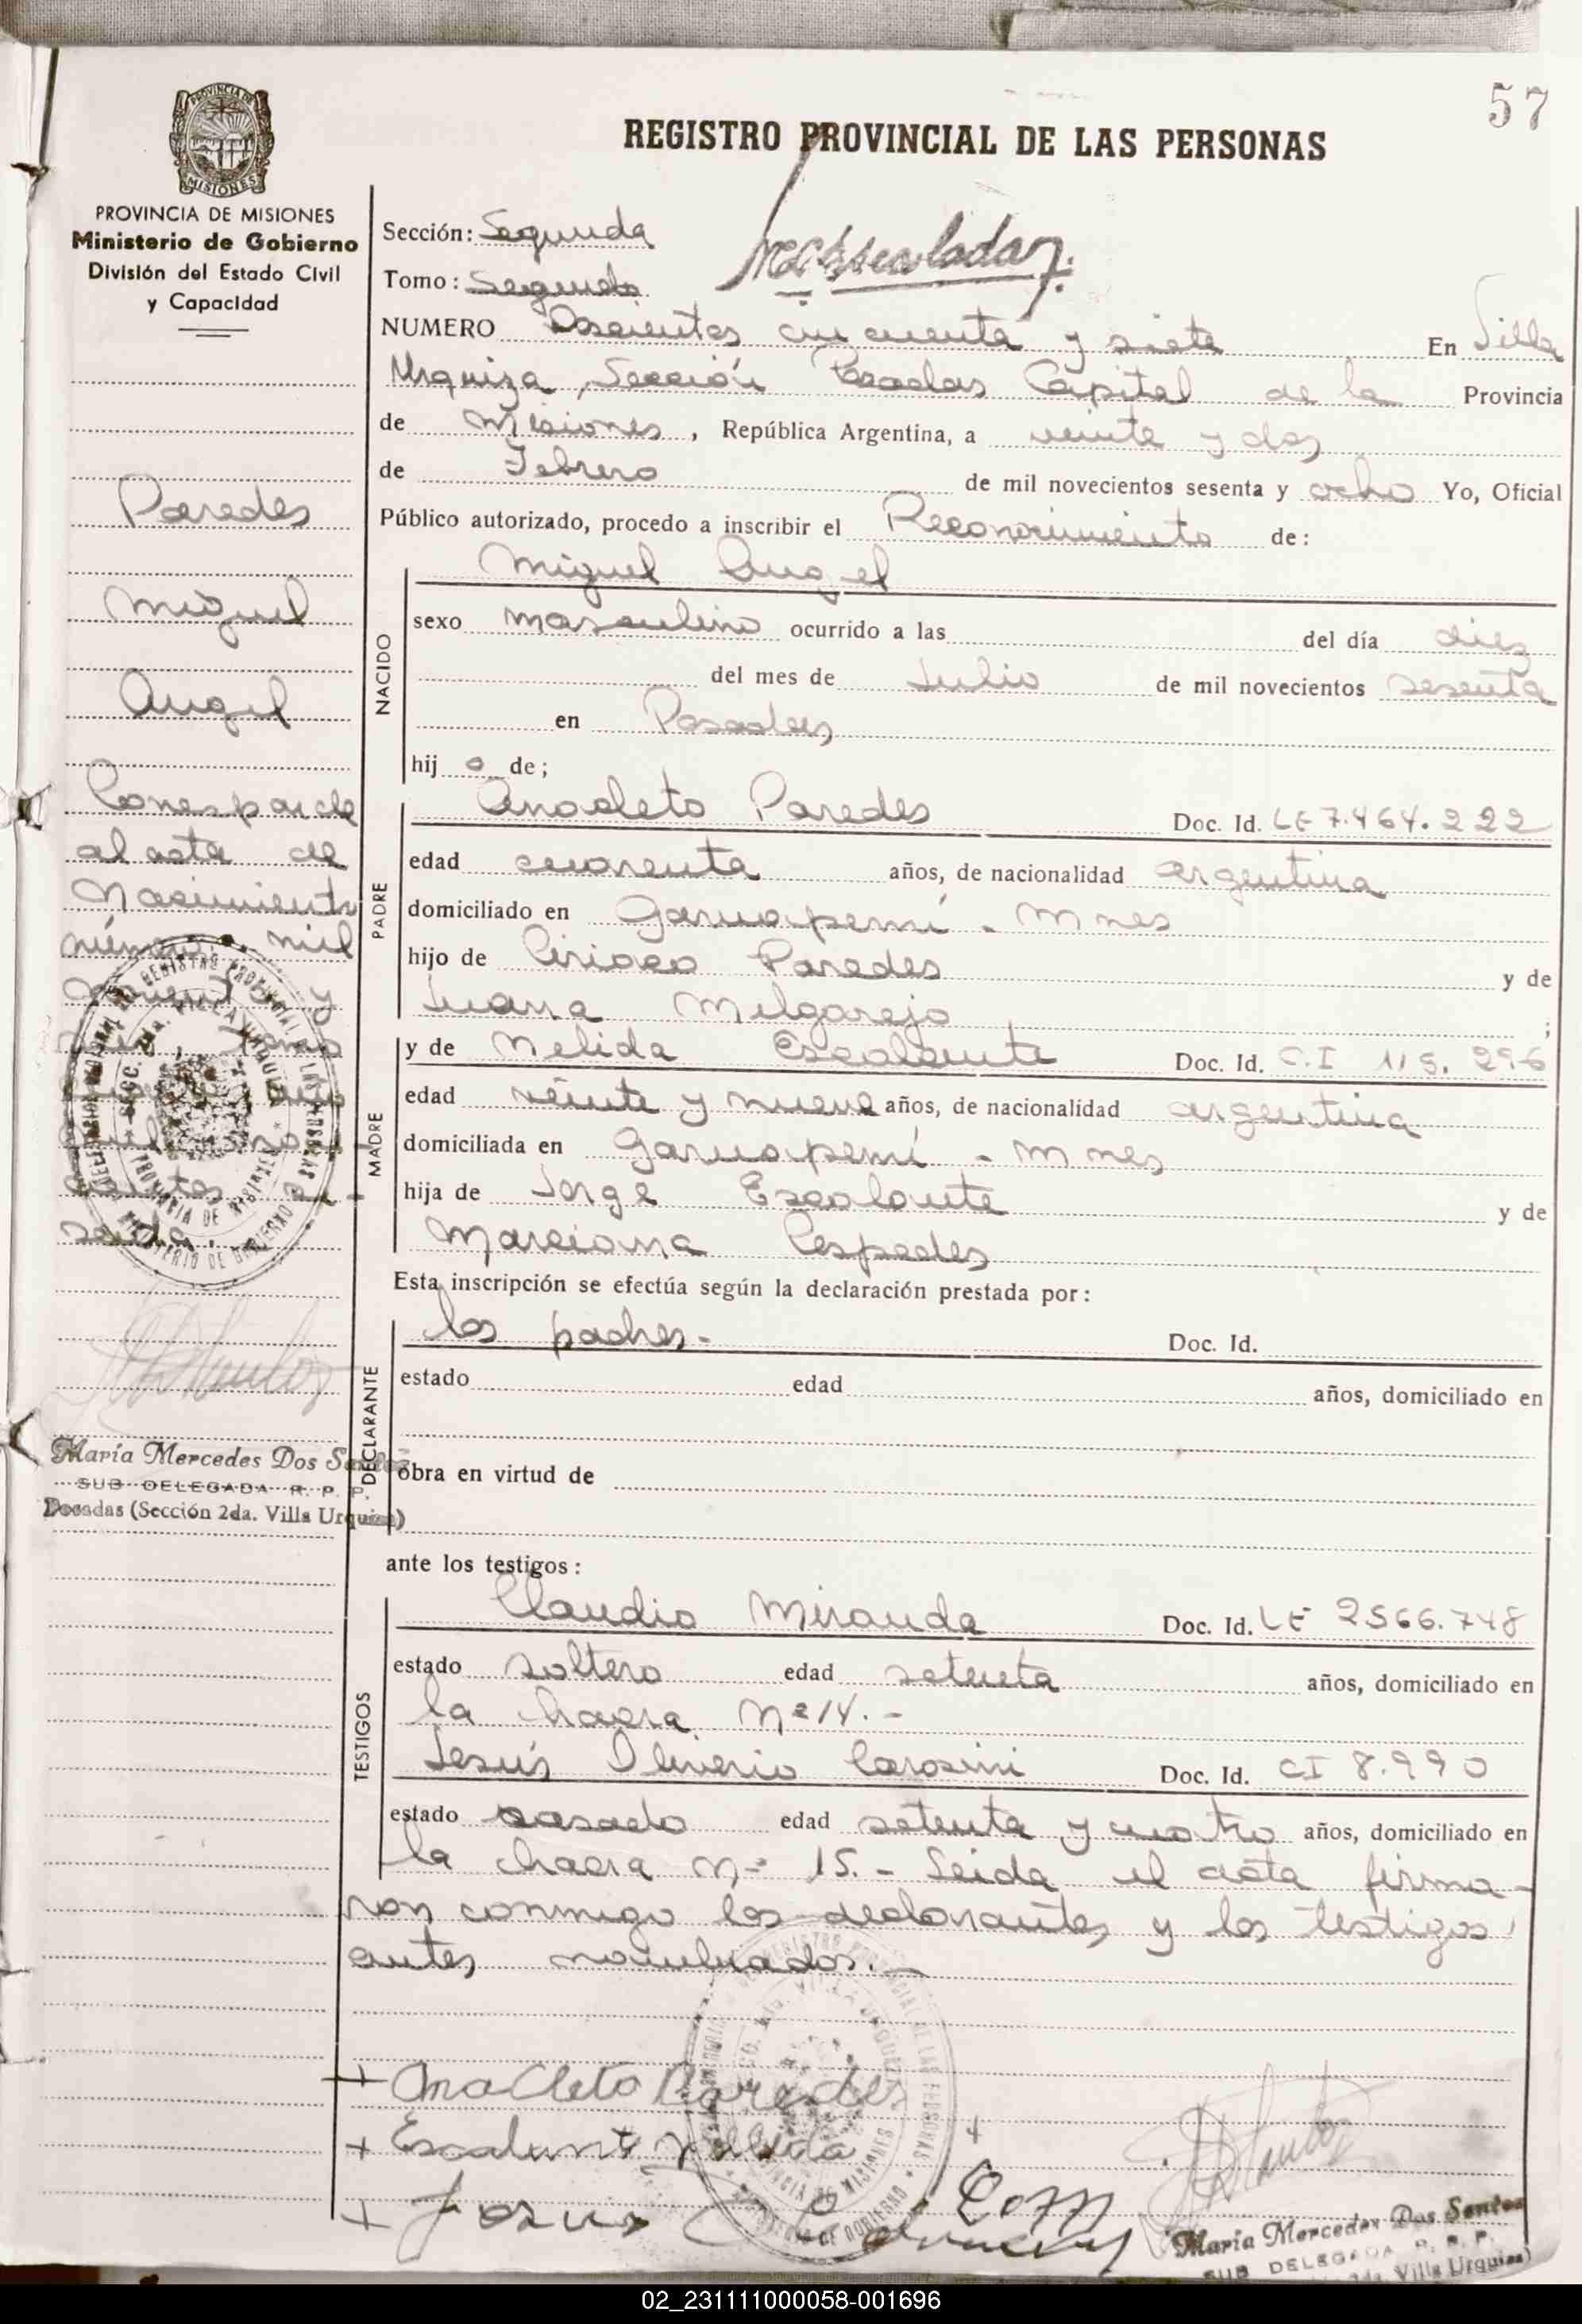 57
REGISTRO PROVINCIAL DE LAS PERSONAS
PROVINCIA DE MISIONES
Ministerio de Gobierno
División del Estado Civil
y Capacidad
Sección: Segunda
Tomo: Segundo
NUMERO Doscientos cincuenta y siete En Villa
Urquiza, Sección Posadas Capital de la Provincia
de Misiones, República Argentina, a veinte y dos
de Febrero de mil novecientos sesenta y ocho Yo, Oficial
Público autorizado, procedo a inscribir el Reconocimiento de:
Paredes
Miguel
Angel
Corresponde
al acta de
Nacimiento
número: mil
NACIDO
Miguel Angel
sexo masculino ocurrido a las del día diez
del mes de Julio de mil novecientos sesenta
en Posadas
hij o de;
PADRE
Anacleto Paredes Doc. Id. LE 7.464.222
edad cuarenta años, de nacionalidad argentina
domiciliado en Garuapemí - Mnes
hijo de Ciriaco Paredes y de
Juana Melgarejo ;
MADRE
y de Nelida Escalante Doc. Id. C.I 115.296
edad veinte y nueve años, de nacionalidad argentina
domiciliada en Garuapemí - Mnes
hija de Jorge Escalante y de
Marciana Cespedes
Esta inscripción se efectúa según la declaración prestada por:
DECLARANTE
los padres.- Doc. Id.
estado edad años, domiciliado en
obra en virtud de
María Mercedes Dos Santos
SUB DELEGADA R. P. P.
Posadas (Sección 2da. Villa Urquiza)
ante los testigos:
TESTIGOS
Claudio Miranda Doc. Id. LE 2566.748
estado soltero edad setenta años, domiciliado en
la chacra Nº 14.-
Jesús Oliverio Carosini Doc. Id. CI 8.990
estado casado edad setenta y cuatro años, domiciliado en
la chacra nº 15.- Leida el acta firma-
ron conmigo los declarantes y los testigos
antes nombrados.-
+ Anacleto Paredes
+ Escalante Nelida
+ Jesus
María Mercedes Dos Santos
SUB DELEGADA R. P. P.
2da. Villa Urquiza)
02_231111000058-001696